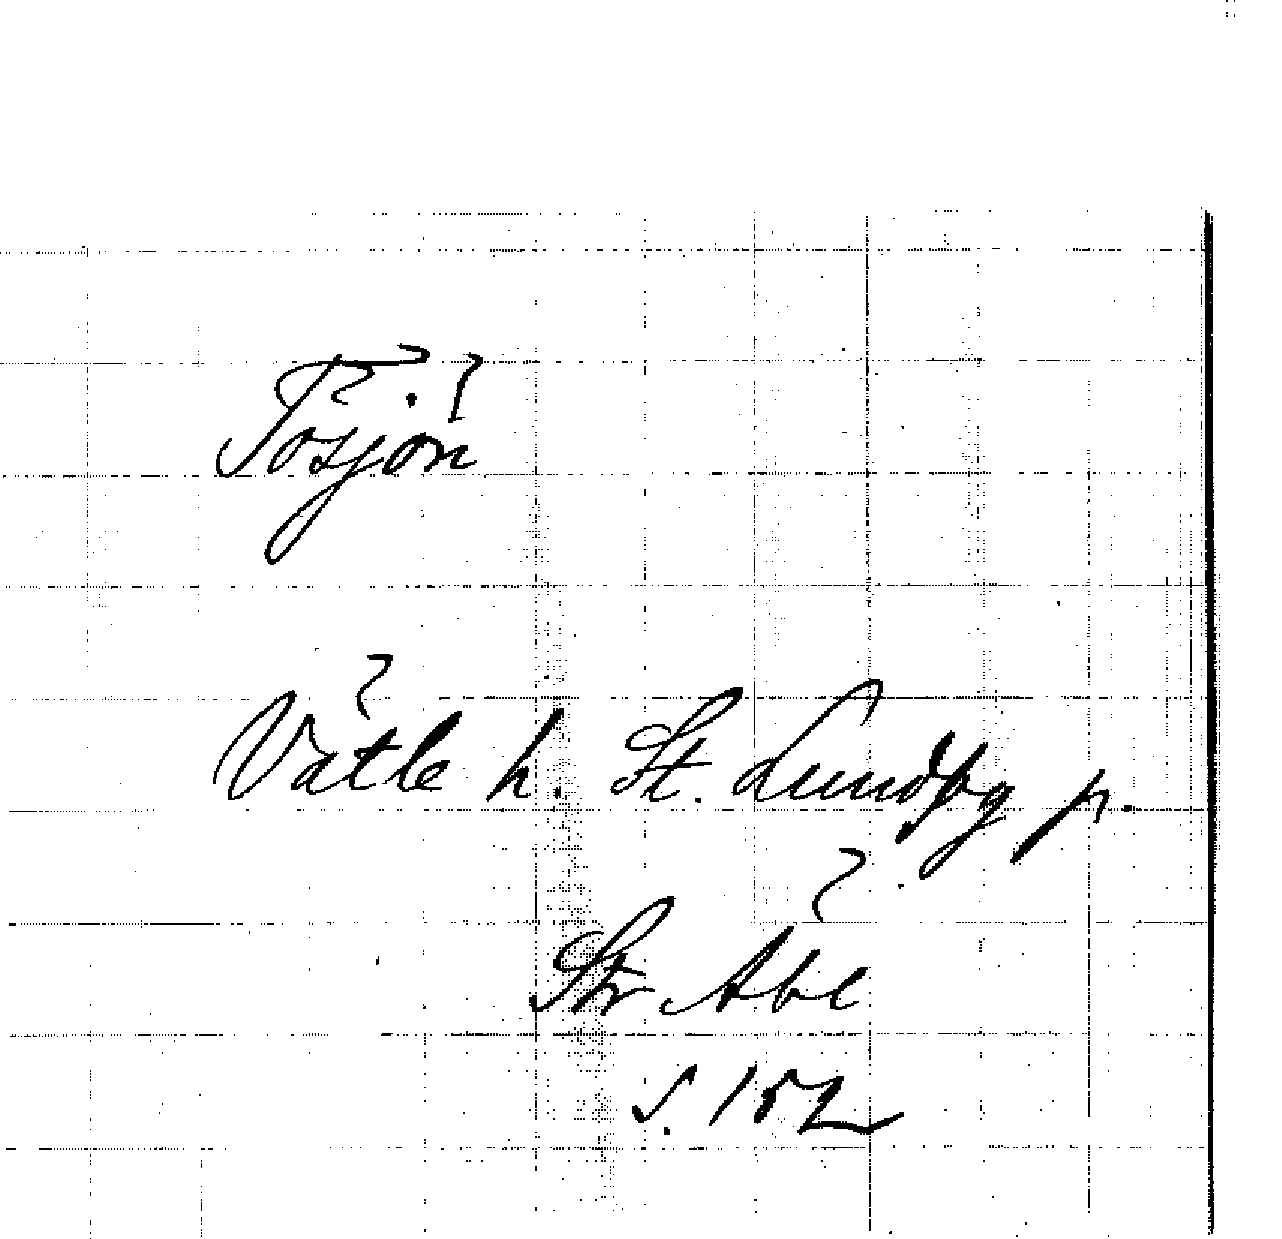 Tösjön
Vätle h. St. Lundby p.
Str Abl
s. 152